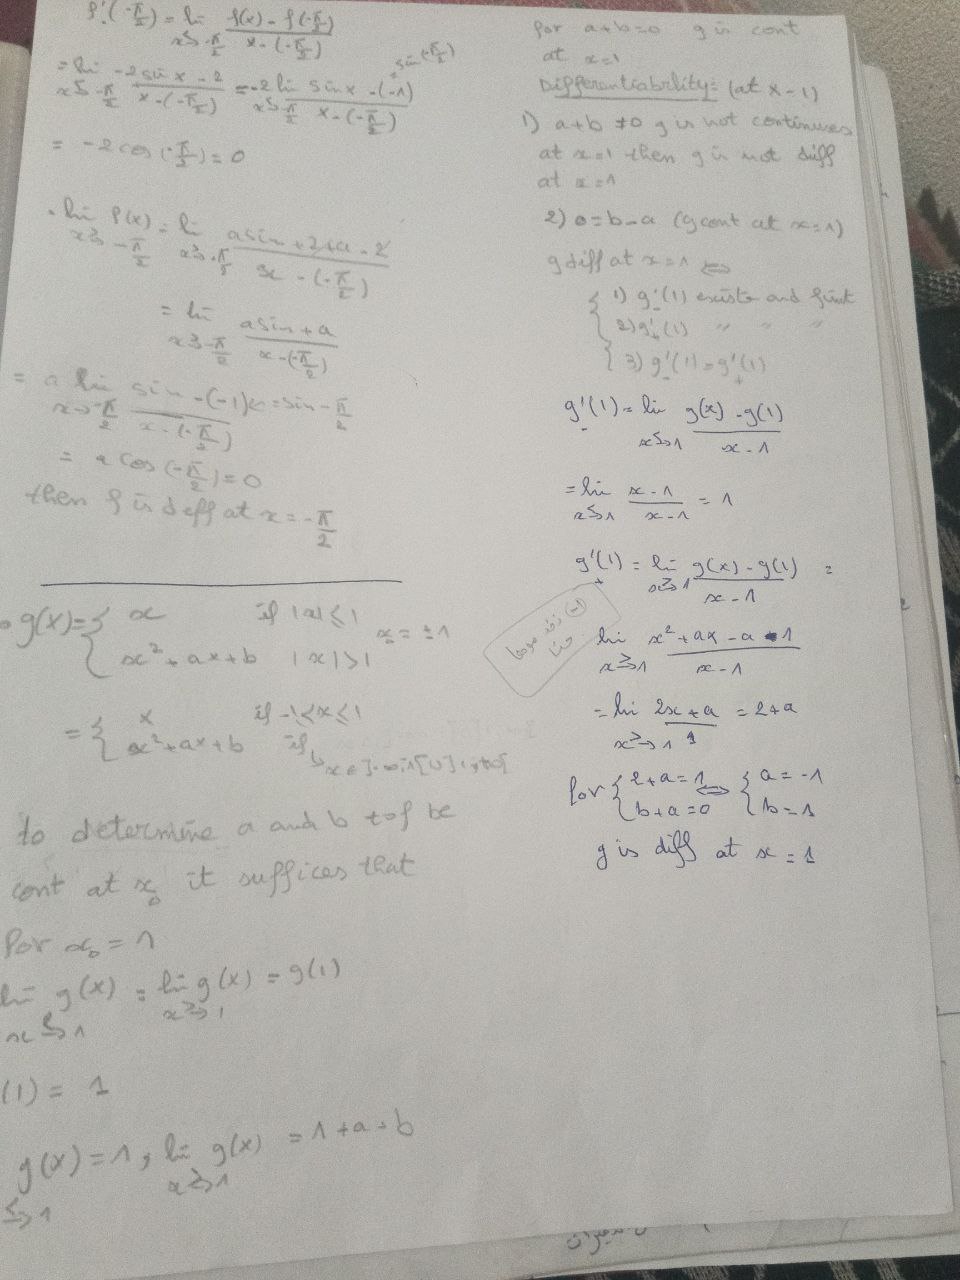 f'(-π/2) = lim f(x) - f(-π/2) / x - (-π/2)
x→-π/2
= lim -2 sin x - 2 / x - (-π/2) = -2 lim sin x - (-1) / x - (-π/2)
x→-π/2 x→-π/2 = sin(-π/2)
= -2 cos(-π/2) = 0
. lim f(x) = lim a sin + 2 + a - 2 / x - (-π/2)
x→-π/2 x→-π/2
= lim a sin + a / x - (-π/2)
x→-π/2
= a lim sin - (-1) ← = sin -π/2 / x - (-π/2)
x→-π/2
= a cos(-π/2) = 0
then f is deff at x = -π/2
g(x) = { x if |x| ≤ 1
x² + ax + b |x| > 1 x = ±1
= { x if -1 ≤ x ≤ 1
x² + ax + b if
x ∈ ]-∞, 1[ U ]1, +∞[
to determine a and b tof be
cont at x₀ it suffices that
for x₀ = 1
lim g(x) = lim g(x) = g(1)
x→1 x→1
(1) = 1
g(x) = 1, lim g(x) = 1 + a + b
→1 x→1
for a+b=0 g is cont
at x=1
Differentiability: (at x-1)
1) a+b ≠0 g is not continues
at x=1 then g is not diff
at x=1
2) 0=b-a (g cont at x=1)
g diff at x=1 ⇔
{ 1) g'_(1) existe and finit
2) g'₊(1) " " "
3) g'_(1) = g'₊(1)
g'_(1) = lim g(x) - g(1) / x - 1
x→1
= lim x-1 / x-1 = 1
x→1
g'₊(1) = lim g(x) - g(1) / x - 1 =
x→1
lim x² + ax - a - 1 / x - 1
x→1
= lim 2x + a / 1 = 2+a
x→1
for { 2+a=1 ⇔ { a=-1
b+a=0 b=1
g is diff at x=1